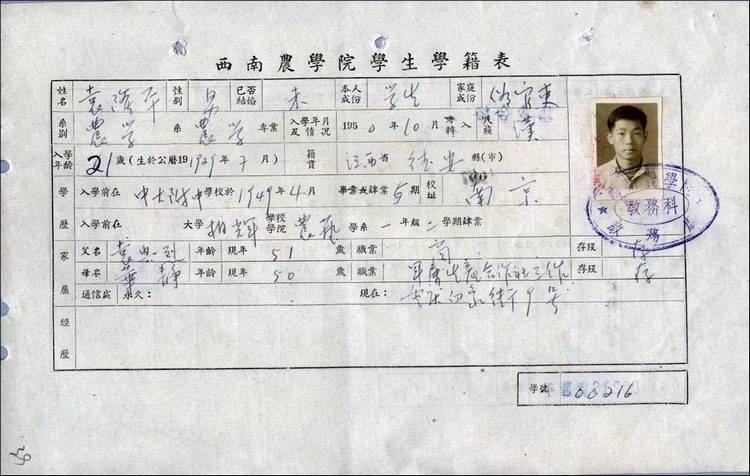 西南農學院學生學籍表
姓名 袁隆平 性別 男 已否結婚 未 本人成份 学生 家庭成份
系別 農学 系 農学 專業 入學年月及情況 1950年10月 考轉 入 民族 漢
入學年齡 21歲(生於公曆191929年7月) 籍貫 江西省 德安 縣(市)
學 入學前在 中大附中學校於1949年4月 畢業或肄業 5期 校址 南京
歷 入學前在 大學 相輝 學校學院 農藝 學系 一年級 二學期肄業
家 父名 袁興烈 年齡 現年 51 歲 職業 商 存歿 存
母名 華靜 年齡 現年 50 歲 職業 軍屬生產合作社工作 存歿 存
屬 通信處 永久: 現在: 9号
經歷
學號 00216
教務科